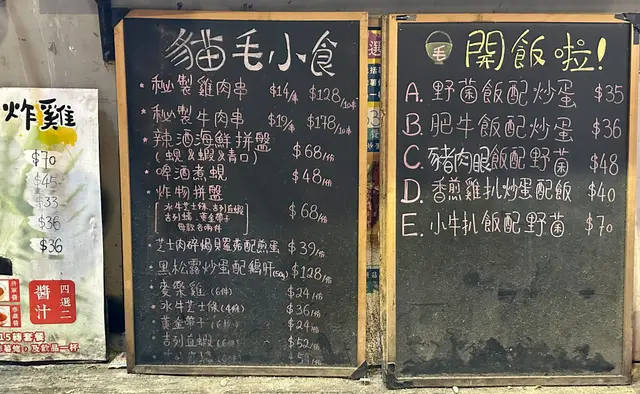 炸雞
$70
$45
$33
$36
$36
醬汁
四選二
貓毛小食
・秘製雞肉串 $14/串 $128/10串
・秘製牛肉串 $19/串 $178/10串
・辣酒海鮮拼盤
(蜆&蝦&青口) $68/份
・啤酒煮蜆 $48/份
・炸物拼盤
$68/份
・芝士肉碎焗貝翠菇配煎蛋 $39/份
・黑松露炒蛋配鵝肝(50g) $128/份
・麥樂雞(6件) $24/份
・氷牛芝士條(4條) $36/份
・黃金帶子(6件) $24/份
・吉列豆蝦(6個) $52/份
毛
開飯啦!
A. 野菌飯配炒蛋 $35
B. 肥牛飯配炒蛋 $36
C. 豬肉眼飯配野菌 $48
D. 香煎雞扒炒蛋配飯 $40
E. 小牛扒飯配野菌 $70